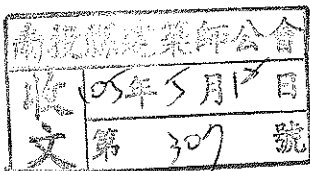 南投縣建築師公會
收文
105年5月18日
第307號